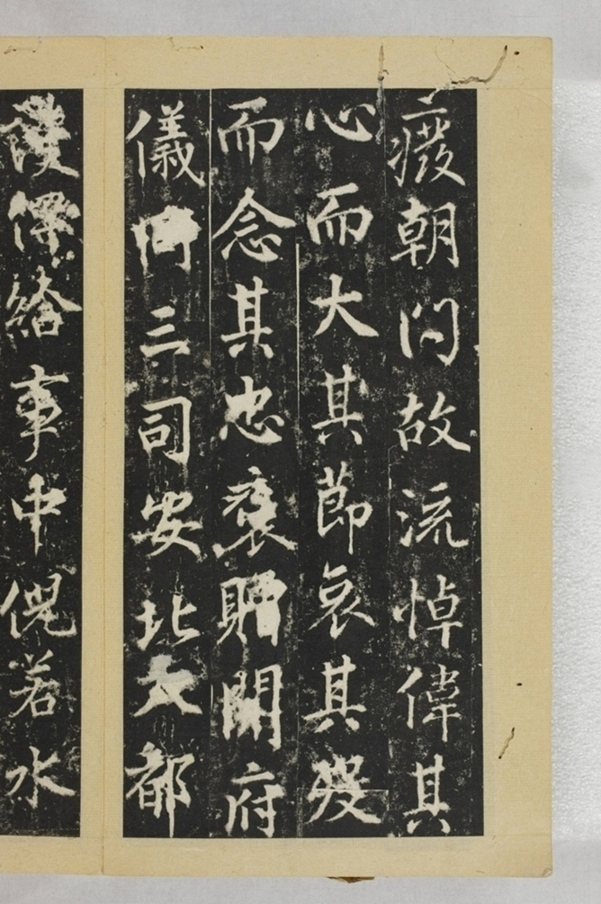 癈朝门故流悼偉其
心而大其節哀其歿
而念其忠褒贈開府
儀同三司安北大都
護俾給事中倪若水